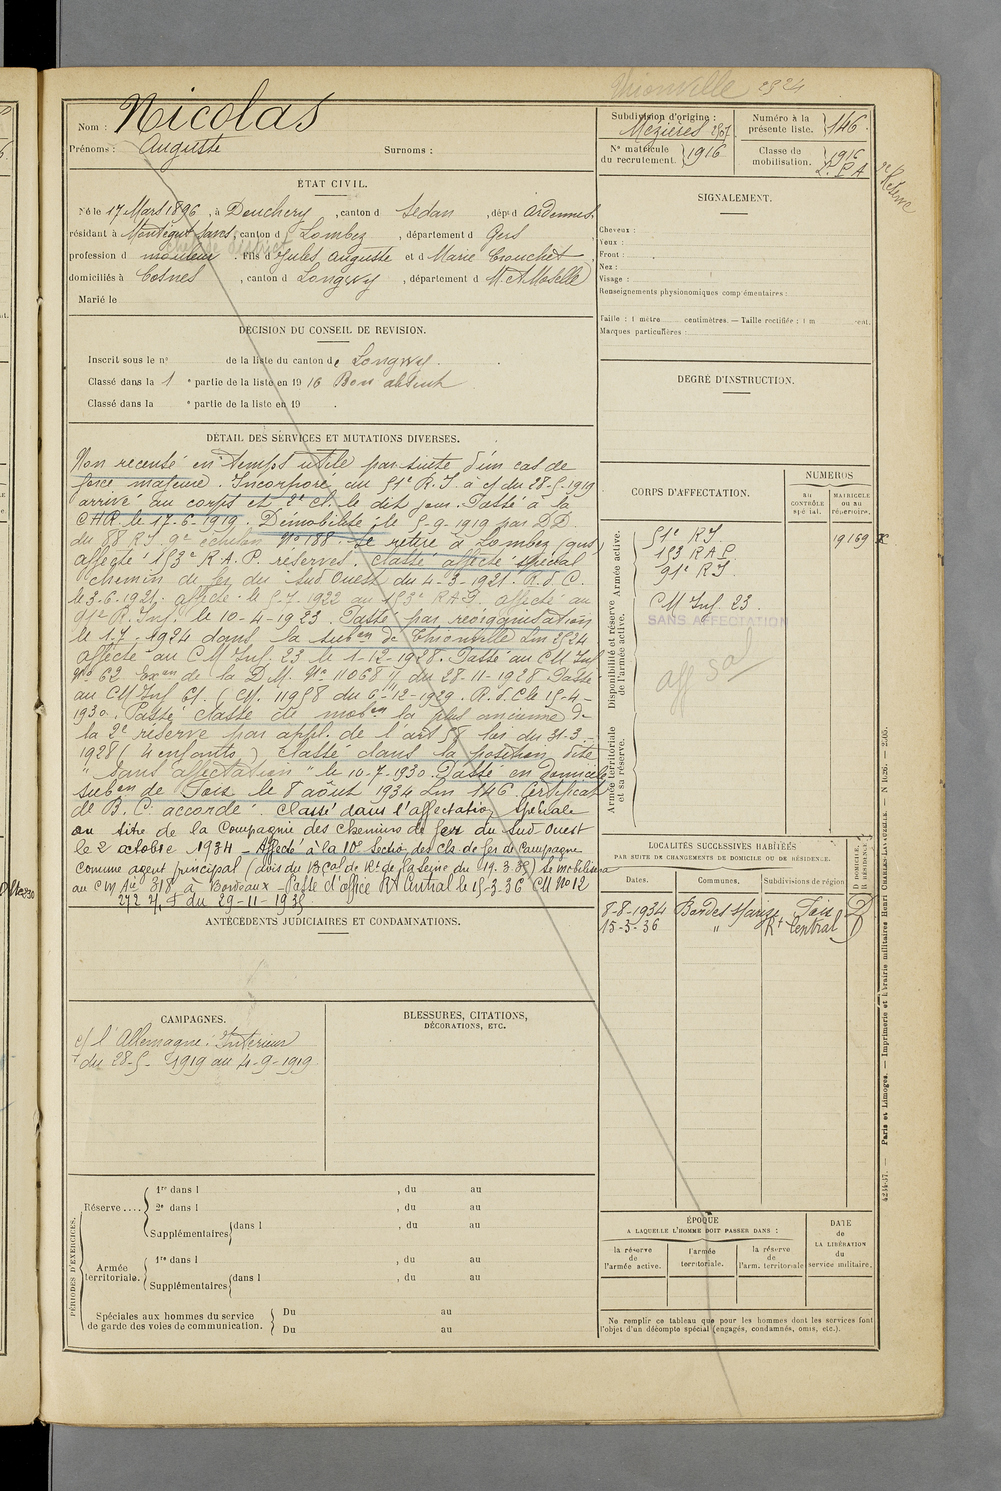 Thionville 2524
Nom : Nicolas
Prénoms : Auguste Surnoms :
Subdivision d'origine :
Mézières
N° matricule du recrutement. 1916
Numéro à la présente liste. 146
Classe de mobilisation. 1916
2e Réserve
ÉTAT CIVIL.
Né le 17 Mars 1896, à Donchery, canton d Sedan, dép. d Ardennes,
résidant à Montégut Savès, canton d Lombez, département d Gers
profession d mouleur. Fils d Jules Auguste et d Marie Crouchet
domiciliés à Cosnes, canton d Longwy, département d M. et Moselle
Marié le
DÉCISION DU CONSEIL DE REVISION.
Inscrit sous le n° de la liste du canton de Longwy.
Classé dans la 1 e partie de la liste en 19 16 Bon absent
Classé dans la e partie de la liste en 19 .
DÉTAIL DES SERVICES ET MUTATIONS DIVERSES.
Non recensé en temps utile par suite d'un cas de
force majeure. Incorporé au 51e R.I. à c/ du 28-5-1919
arrivé au corps et 2e cl. le dit jour. Passé à la
CHR. le 17-6-1919. Démobilisé le 5-9-1919 par D.D.
du 88 R.I. 9e échelon N° 188. Se retire à Lombez (Gers)
affecté 153e R.A.P. réserves. Classé affecté spécial
chemin de fer du Sud Ouest du 4-3-1921. R.d.C.
le 3-6-1921. affecté le 5-7-1922 au 153e R.A.P. affecté au
91e R. Inf. le 10-4-1923. Passé par réorganisation
le 1-7-1924 dans la subon de Thionville Lm 2524
affecté au CM Inf. 23 le 1-12-1928. Passé au CM Inf
N° 62 Exon de la D.M. N° 11068 du 28-11-1928 Passé
au CM Inf 61. (CM. 11958 du 6-12-1929. R.d.C le 15-4-
1930. Passé classe de mobon la plus ancienne de
la 2e réserve par appl. de l'art 58 loi du 31-3-
1928 (4 enfants) Classé dans la position dite
"Sans affectation" le 10-7-1930. Passé en domicile
subon de Foix le 8 août 1934 Lm 146. Certificat
de B.C. accordé. Classé dans l'affectation spéciale
au titre de la Compagnie des chemins de fer du Sud Ouest
le 2 octobre 1934 - Affecté à la 10e Sectio des ch. de fer de Campagne
comme agent principal (avis du Bcal de Rt de la Seine du 19.3.35) Se mobilisera
au CM 318 à Bordeaux - Passé d'office Rt Central le 15-3-36 CM N° 12
272 du 29-11-1935
ANTÉCÉDENTS JUDICIAIRES ET CONDAMNATIONS.
CAMPAGNES.
c/ l'Allemagne : Intérieur
du 28-5-1919 au 4-9-1919
BLESSURES, CITATIONS,
DÉCORATIONS, ETC.
PÉRIODES D'EXERCICES.
Réserve....
1re dans l , du au
2e dans l , du au
Supplémentaires dans l , du au
Armée territoriale.
1re dans l , du au
Supplémentaires dans l , du au
Spéciales aux hommes du service
de garde des voies de communication.
Du au
Du au
SIGNALEMENT.
Cheveux :
Yeux :
Front :
Nez :
Visage :
Renseignements physionomiques complémentaires :
Taille : 1 mètre centimètres. — Taille rectifiée : 1 m cent.
Marques particulières :
DEGRÉ D'INSTRUCTION.
CORPS D'AFFECTATION.
NUMÉROS
AU CONTRÔLE spécial.
MATRICULE OU AU répertoire.
Armée active.
51e R.I. 19169
153 R.A.P.
91e R.I.
Disponibilité et réserve de l'armée active.
CM Inf. 23.
SANS AFFECTATION
aff sal
Armée territoriale et sa réserve.
LOCALITÉS SUCCESSIVES HABITÉES
PAR SUITE DE CHANGEMENTS DE DOMICILE OU DE RÉSIDENCE.
Dates. Communes. Subdivisions de région D DOMICILE, R RÉSIDENCE.
8-8-1934 Foix D
15-3-36 " Rt Central D
ÉPOQUE
A LAQUELLE L'HOMME DOIT PASSER DANS :
la réserve de l'armée active.
l'armée territoriale.
la réserve de l'arm. territoriale
DATE de LA LIBÉRATION du service militaire.
Ne remplir ce tableau que pour les hommes dont les services font
l'objet d'un décompte spécial (engagés, condamnés, omis, etc.).
Paris et Limoges. — Imprimerie et librairie militaires Henri CHARLES-LAVAUZELLE. — N 1626. — 2.05.